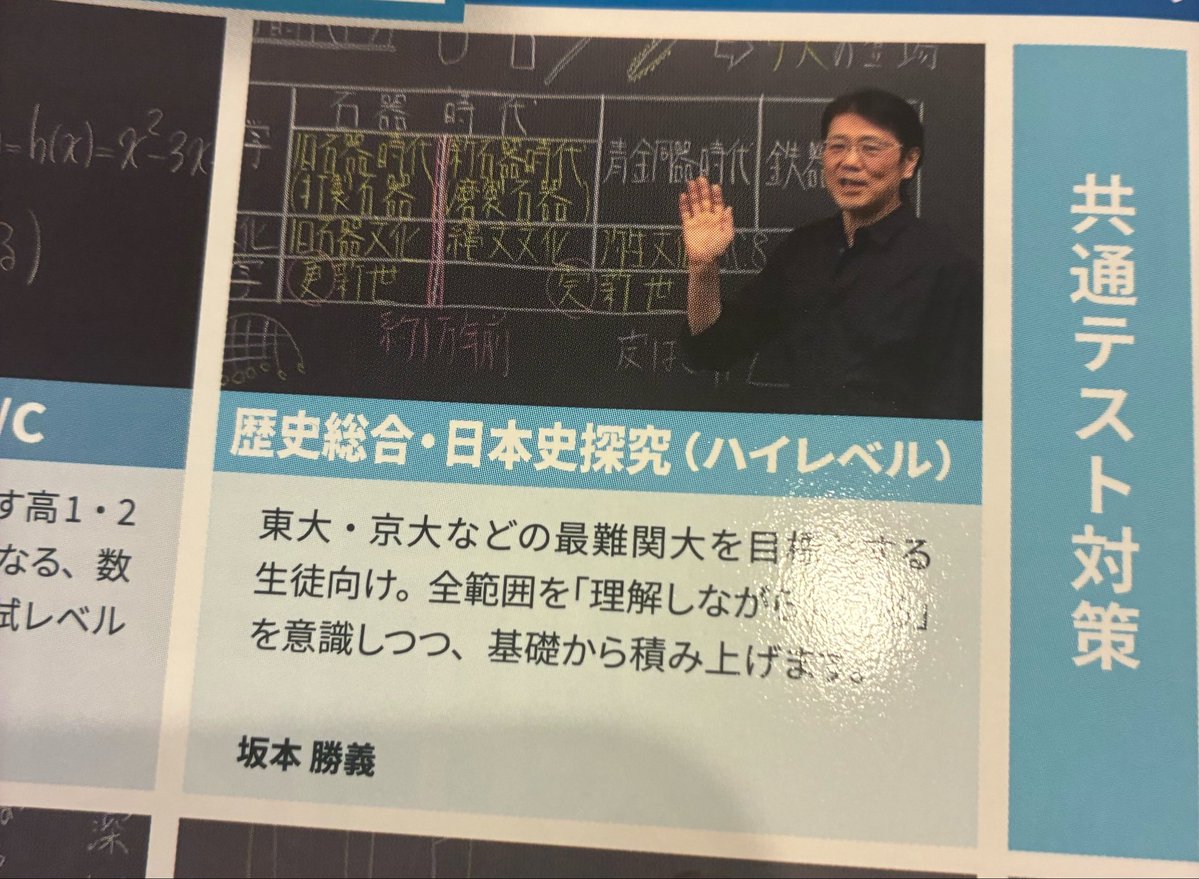 石器時代
旧石器時代
(打製石器)
新石器時代
(磨製石器)
青銅器時代
鉄器
旧石器文化
縄文文化
更新世
完新世
約1万年前
h(x)=x²-3x
/C
す高1・2
なる、数
試レベル
歴史総合・日本史探究(ハイレベル)
東大・京大などの最難関大を目標とする
生徒向け。全範囲を「理解しながら
を意識しつつ、基礎から積み上げます。
坂本 勝義
共通テスト対策
深